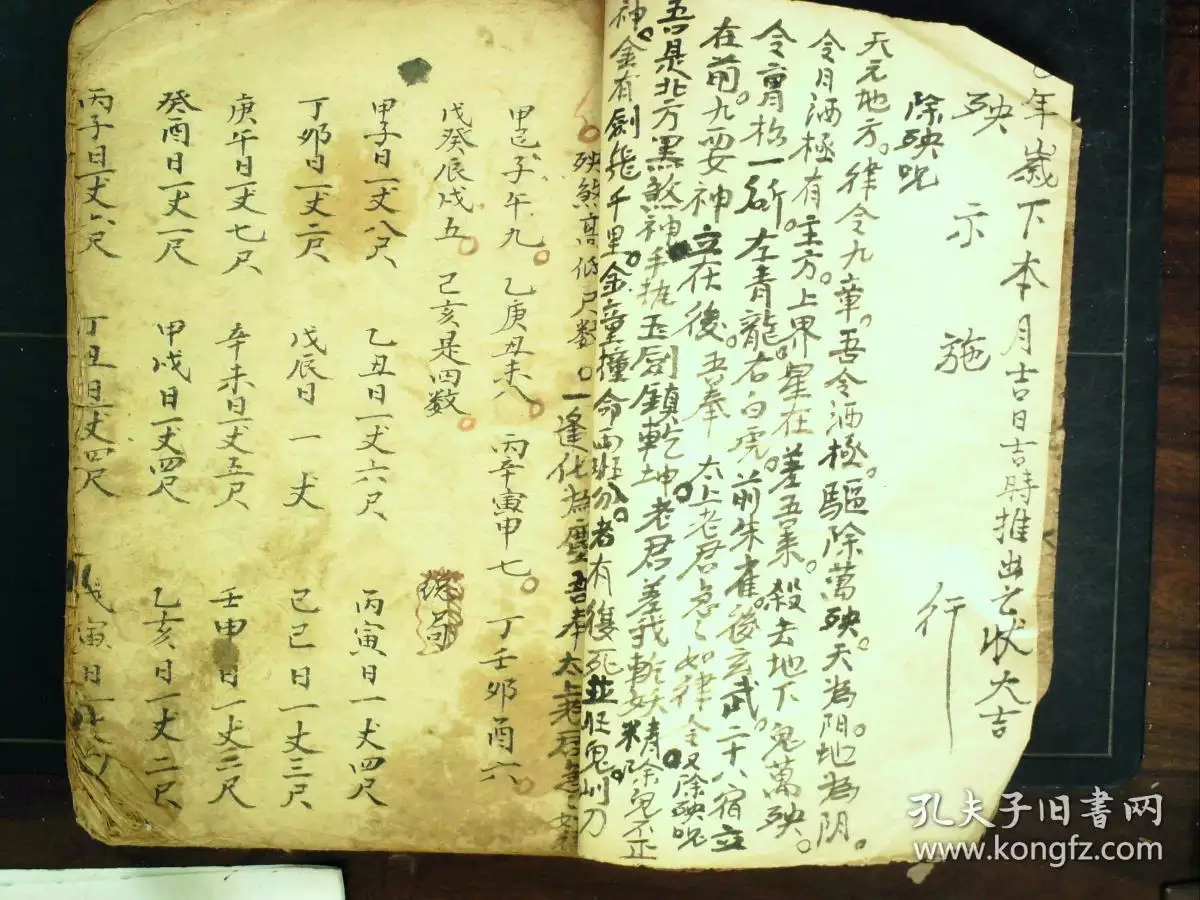 年歲下本月吉日吉時推出之狀大吉
殃示施行
除殃咒
天元地方。律令九章。吾令洒極。驅除萬殃。天為阳。地為阴。
令月洒極有。主方。上界星在差五里。殺去地下鬼萬殃。
令齊板一所。左青龍。右白虎。前朱雀。後玄武。二十八宿立
在前。九罡神立在後。吾奉太上老君急々如律令。又除殃咒
吾是北方黑煞神。手執玉劍鎮乾坤。老君差我斬妖精。除鬼
神。金有劍飛千里。金童撞命两班分。者有復死並狂鬼。
一逢化為塵。吾奉太上老君急々如律
殃煞高低尺數。
甲己子午九。乙庚丑未八。丙辛寅申七。丁壬卯酉六。
戊癸辰戌五。己亥是四数。
甲子日一丈八尺 乙丑日一丈六尺 丙寅日一丈四尺
丁卯日一丈二尺 戊辰日一丈 己巳日一丈三尺
庚午日一丈七尺 辛未日一丈五尺 壬申日一丈三尺
癸酉日一丈一尺 甲戌日一丈四尺 乙亥日一丈二尺
丙子日一丈六尺 丁丑日一丈四尺 戊寅日一丈
孔夫子旧書网
www.kongfz.com